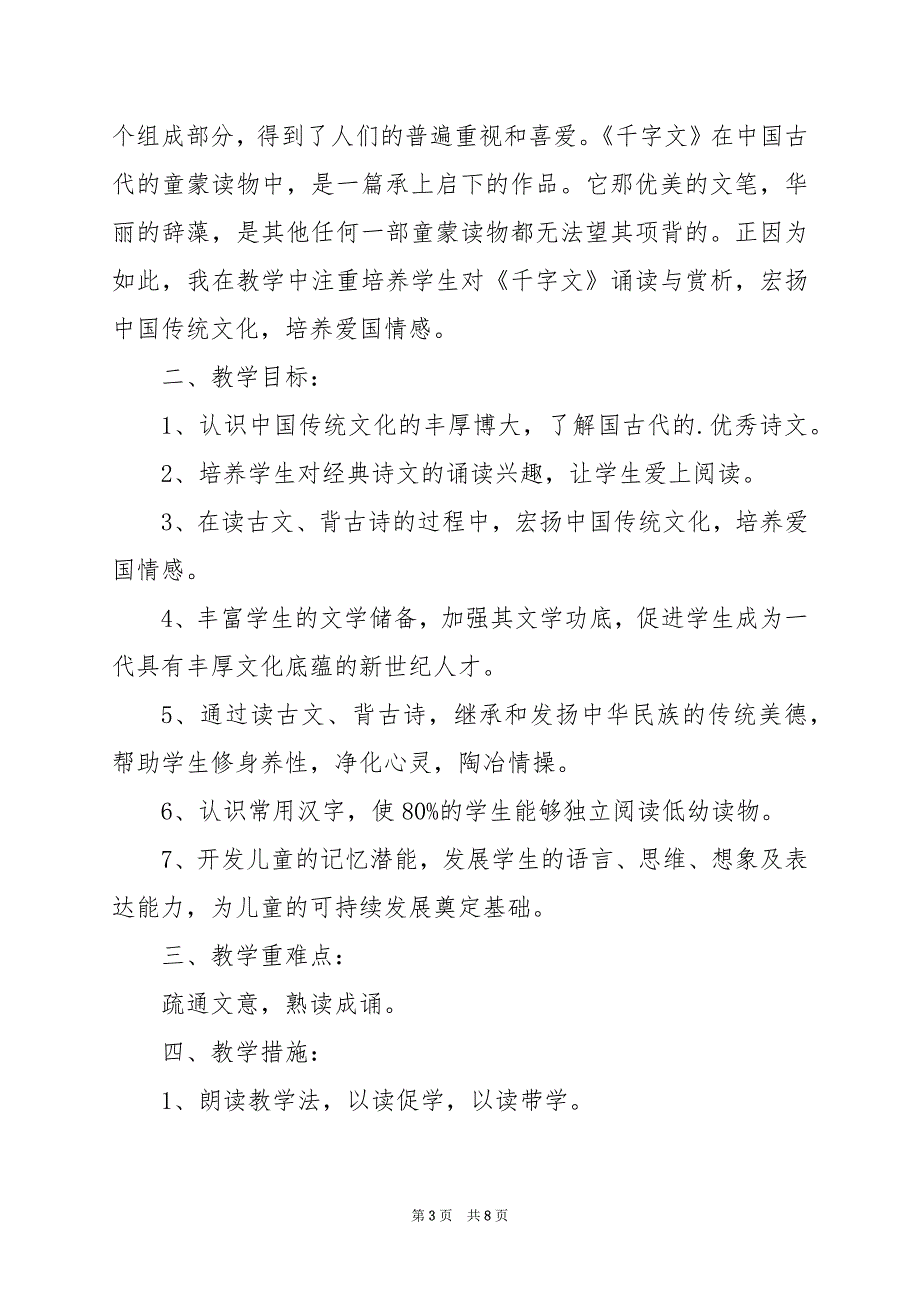 个组成部分，得到了人们的普遍重视和喜爱。《千字文》在中国古
代的童蒙读物中，是一篇承上启下的作品。它那优美的文笔，华
丽的辞藻，是其他任何一部童蒙读物都无法望其项背的。正因为
如此，我在教学中注重培养学生对《千字文》诵读与赏析，宏扬
中国传统文化，培养爱国情感。
二、教学目标：
1、认识中国传统文化的丰厚博大，了解国古代的.优秀诗文。
2、培养学生对经典诗文的诵读兴趣，让学生爱上阅读。
3、在读古文、背古诗的过程中，宏扬中国传统文化，培养爱
国情感。
4、丰富学生的文学储备，加强其文学功底，促进学生成为一
代具有丰厚文化底蕴的新世纪人才。
5、通过读古文、背古诗，继承和发扬中华民族的传统美德，
帮助学生修身养性，净化心灵，陶冶情操。
6、认识常用汉字，使 80%的学生能够独立阅读低幼读物。
7、开发儿童的记忆潜能，发展学生的语言、思维、想象及表
达能力，为儿童的可持续发展奠定基础。
三、教学重难点：
疏通文意，熟读成诵。
四、教学措施：
1、朗读教学法，以读促学，以读带学。
第 3 页 共 8 页